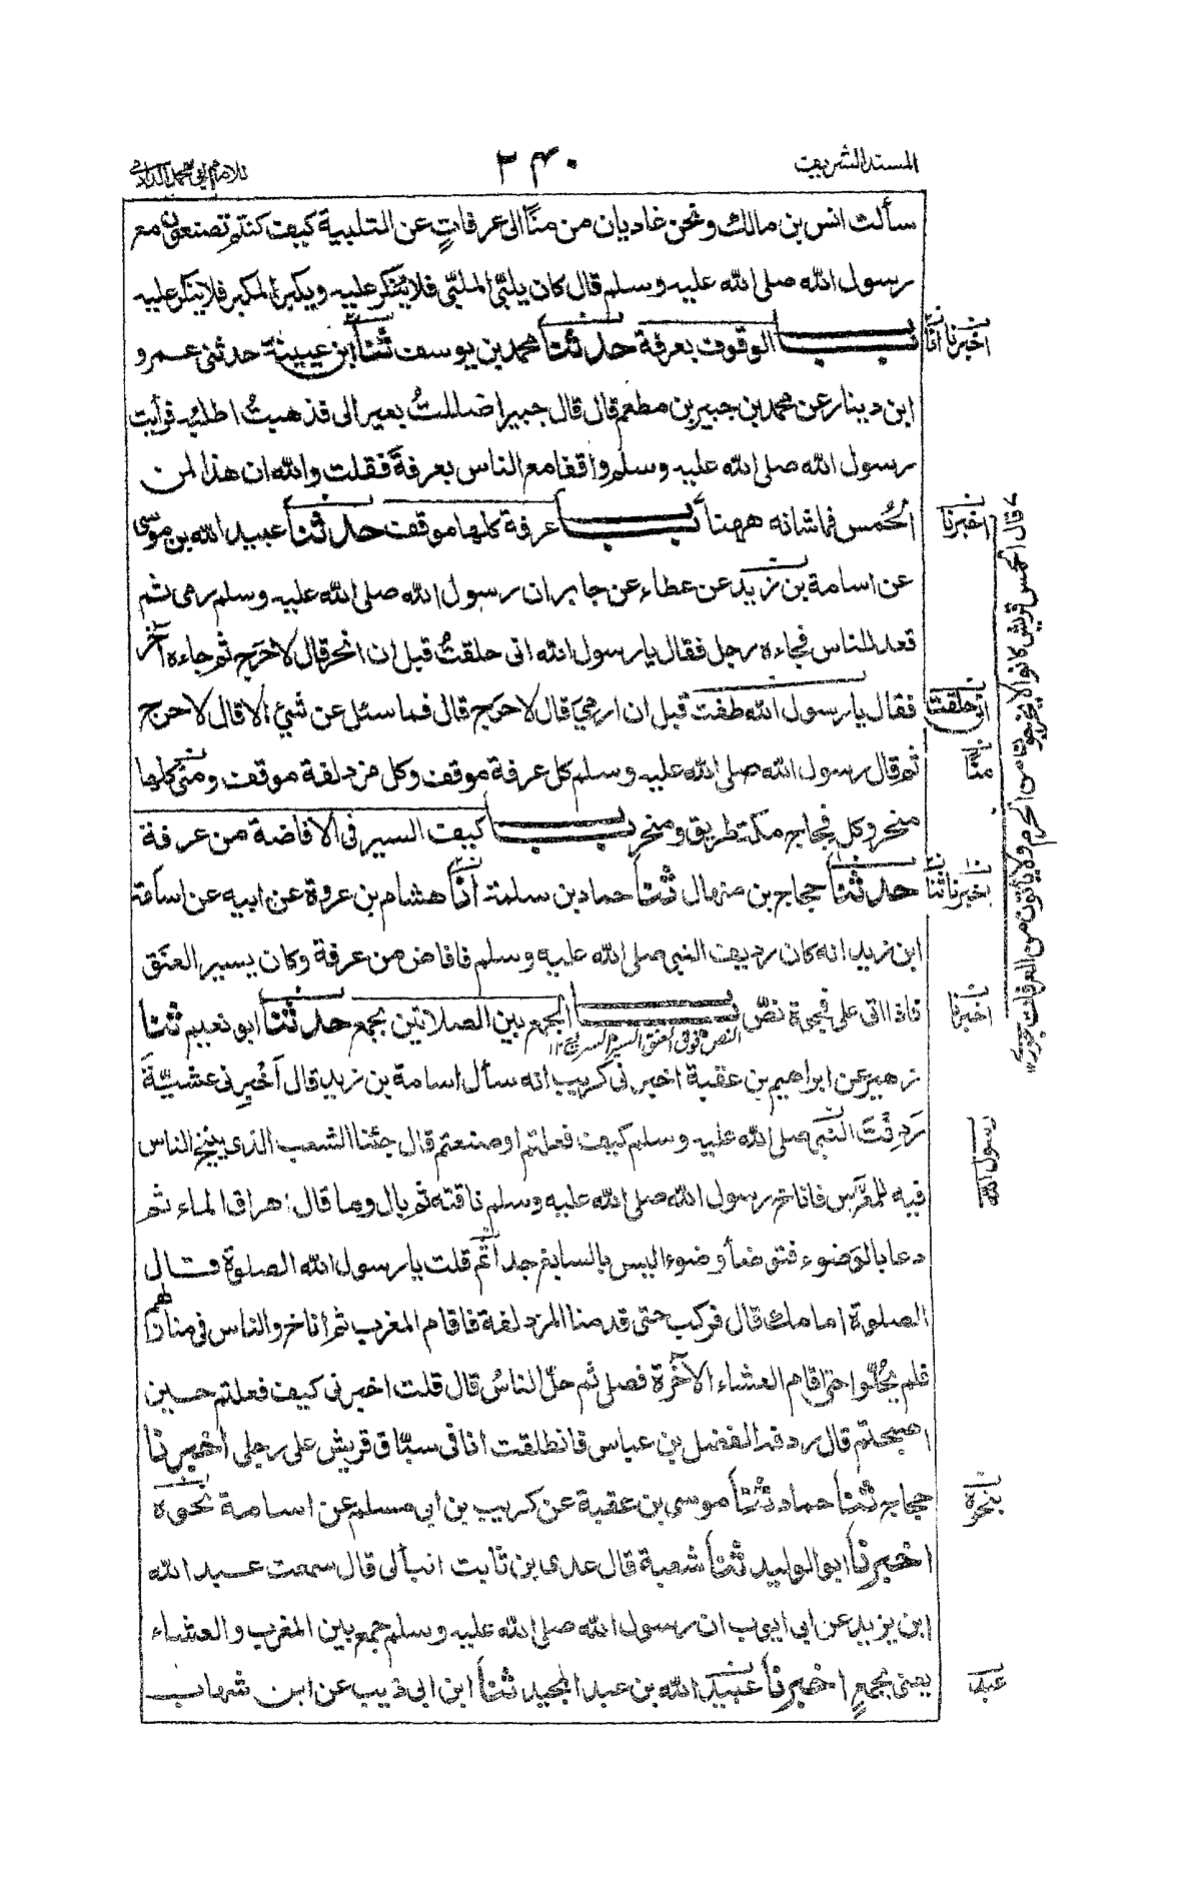 المسند الشريف
٢٤٠
للامام ابي محمد الدارمي
سألت انس بن مالك ونحن غاديان من منًا الى عرفاتٍ عن التلبية كيف كنتم تصنعون مع
رسول الله صلى الله عليه وسلم قال كان يلبّي الملبّي فلا يُنكر عليه ويكبر المكبر فلا ينكر عليه
بــاب الوقوف بعرفة حدثنا محمد بن يوسف ثنا ابن عيينة حدثنى عمرو
ابن دينار عن محمد بن جبير بن مطعم قال قال جبير اضللتُ بعيرا لى فذهبتُ اطلبُه فرأيت
رسول الله صلى الله عليه وسلم واقفا مع الناس بعرفةَ فقلت والله ان هذا لمن
الحُمس فما شانه ههنا بــاب عرفة كلها موقف حدثنا عبيد الله بن موسى
عن اسامة بن زيد عن عطاء عن جابر ان رسول الله صلى الله عليه وسلم رمى ثم
قعد للناس فجاءه رجل فقال يا رسول الله انى حلقتُ قبل ان انحر قال لا حَرَج ثم جاءه آخر
فقال يا رسول الله طفت قبل ان ارمي قال لا حرج قال فما سئل عن شئ الا قال لا حرج
ثم قال رسول الله صلى الله عليه وسلم كل عرفة موقف وكل مزدلفة موقف ومنى كلها
منحر وكل فجاج مكة طريق ومنحر بــاب كيف السير فى الافاضة من عرفة
حدثنا حجاج بن منهال ثنا حماد بن سلمة انا هشام بن عروة عن ابيه عن اسامة
ابن زيد انه كان رديف النبى صلى الله عليه وسلم فافاض من عرفة وكان يسير العنَق
فاذا اتى على فجوة نصّ بــاب الجمع بين الصلاتين بجمع حدثنا ابو نعيم ثنا
النص فوق العنق السير السريع ١٢
زهير عن ابراهيم بن عقبة اخبرنى كريب انه سأل اسامة بن زيد قال اَخْبِرنى عشيّةَ
رَدِفْتَ النبى صلى الله عليه وسلم كيف فعلتم او صنعتم قال جئنا الشعب الذى ينيخ الناس
فيه للمعرَّس فاناخ رسول الله صلى الله عليه وسلم ناقته ثم بال وما قال: هراق الماء ثم
دعا بالوَضوء فتوضأ وضوءا ليس بالسابغ جدا ثم قلت يا رسول الله الصلوة قــال
الصلوة امامك قال فركب حتى قدمنا المزدلفة فاقام المغرب ثم اناخ والناس فى منازلهم
فلم يحُلّوا حتى اقام العشاء الآخرة فصلى ثم حلّ الناسُ قال قلت اخبرنى كيف فعلتم حــين
اصبحتم قال ردفه الفضل بن عباس فانطلقت انا فى سبّاق قريش على رجلى اخبرنا
حجاج ثنا حماد ثنا موسى بن عقبة عن كريب بن ابي مسلم عن اسامة نحوه
اخبرنا ابو الوليد ثنا شعبة قال عدى بن ثابت انبأنى قال سمعت عــبد الله
ابن يزيد عن ابى ايوب ان رسول الله صلى الله عليه وسلم جمع بين المغرب والعشاء
يعنى بجمعٍ اخبرنا عبيد الله بن عبد المجيد ثنا ابن ابى ذيب عن ابن شهاب
اخبرنا انا
اخبرنا
انى حلقت
منًا
اخبرنا ثنا
اخبرنا
رسول الله
بنحوه
عبد
قال الحمس قريش كانوا لا يخرجون من الحرم ولا يأتون من العرفات